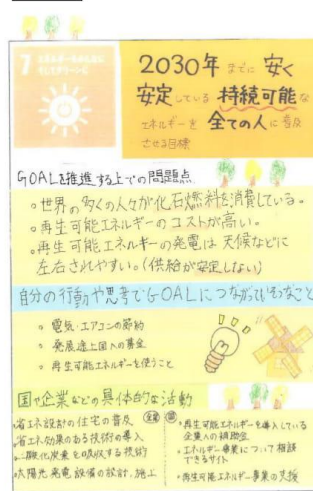 7 エネルギーをみんなに
そしてクリーンに
2030年までに 安く
安定している 持続可能な
エネルギーを 全ての人に普及
させる目標
GOALを推進する上での問題点
。世界の多くの人々が化石燃料を消費している。
。再生可能エネルギーのコストが高い。
。再生可能エネルギーの発電は天候などに
左右されやすい。(供給が安定しない)
自分の行動や思考でGOALにつながっていそうなこと
。電気・エアコンの節約
。発展途上国への募金
。再生可能エネルギーを使うこと
国や企業などの具体的な活動
・省エネ設計の住宅の普及 企業
・省エネ効果のある技術の導入
・二酸化炭素を吸収する技術
・太陽光発電設備の設計、施工
国
・再生可能エネルギーを導入している
企業への補助金
・エネルギー事業について相談
できるサイト
・再生可能エネルギー事業の支援